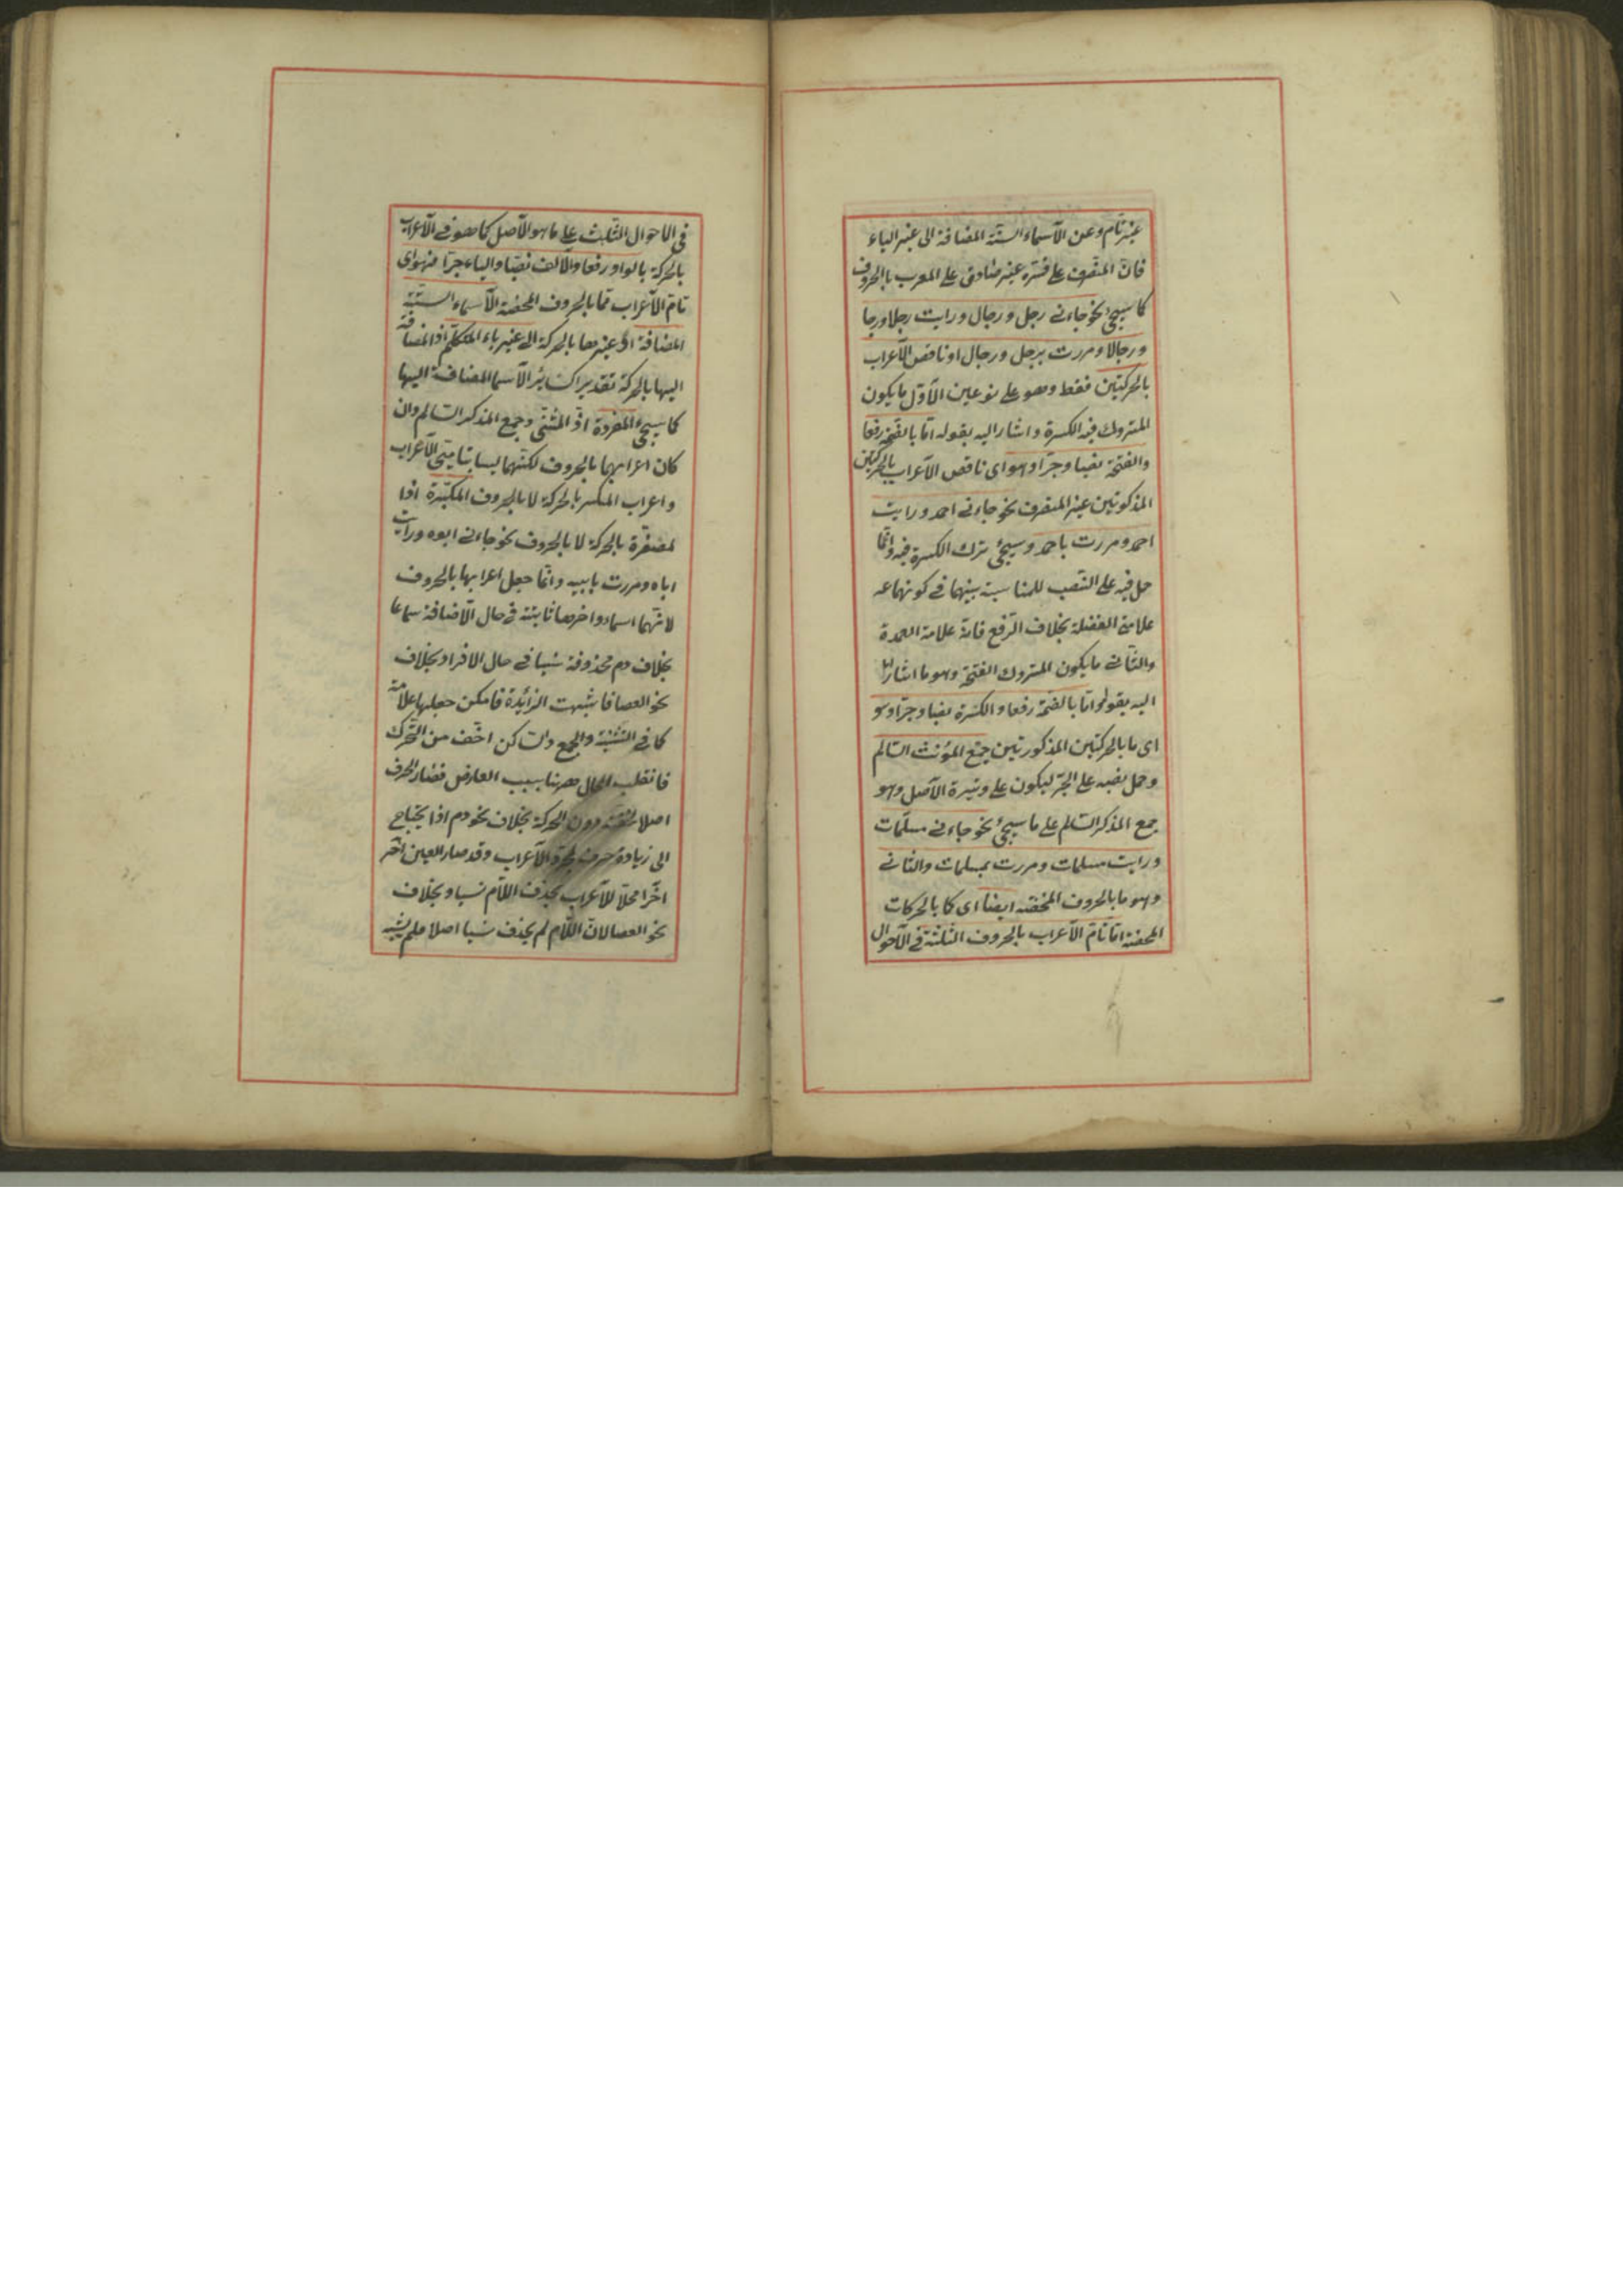 غير تام وعن الأسماء الستة المضافة الى غير الياء
فان المنصرف على فسره غير صادق على المعرب بالحروف
كما سيجئ نحو جاءني رجل ورجال ورايت رجلا ورجا
ورجالا ومررت برجل ورجال او ناقص الأعراب
بالحركتين فقط وهو على نوعين الأول ما يكون
المتروك فيه الكسرة واشار اليه بقوله اما بالضمة رفعا
والفتحة نصبا وجرا وهو اى ناقص الأعراب بالحركتين
المذكورتين غير المنصرف نحو جاءني احمد ورايت
احمد ومررت باحمد وسيجئ ترك الكسرة فيه وانما
حمل فيه على النصب للمناسبة بينهما في كونهما
علامتى الفضلة بخلاف الرفع فانه علامة العمدة
والثاني ما يكون المتروك الفتحة وهو ما اشار
اليه بقوله واما بالضمة رفعا والكسرة نصبا وجرا وهو
اى ما بالحركتين المذكورتين جمع المؤنث السالم
وحمل نصبه على الجر ليكون على وتيرة الأصل وهو
جمع المذكر السالم على ما سيجئ نحو جاءني مسلمات
ورايت مسلمات ومررت بمسلمات والثاني
وهو ما بالحروف المحضة ايضا اى كما بالحركات
المحضة اما تام الأعراب بالحروف الثلثة في الأحوال
في الاحوال الثلث على ما هو الأصل كما هو في الأعراب
بالحركة بالواو رفعا والألف نصبا والياء جرا فهو اى
تام الأعراب مما بالحروف المحضة الأسماء الستة
المضافة اذ غيرها بالحركة الى غير ياء المتكلم اذ المضافة
اليها بالحركة تقديرا كسائر الأسما المضافة اليها
كما سيجئ المفردة اذ المثنى وجمع المذكر السالم وان
كان اعرابهما بالحروف لكنهما ليسا بتامى الأعراب
واعراب المكسر بالحركة لا بالحروف المكبرة اذا
لمصغرة بالحركة لا بالحروف نحو جاءني ابوه ورايت
اباه ومررت بابيه وانما جعل اعرابها بالحروف
لانهما اسماء واخرها ثابتة في حال الأضافة سماعا
بخلاف دم محذوفة نسيا في حال الافراد بخلاف
نحو العصا فاشبهت الزائدة فامكن جعلها علامة
كما في التثنية والجمع والساكن اخف من المتحرك
فانقلب الحال ههنا بسبب العارض فصار الحرف
اصلا لخفته دون الحركة بخلاف نحو دم اذا يحتاج
الى زيادة حرف لمجرد الأعراب وقد صار العين
اخرا محلا للأعراب بحذف اللام نسيا وبخلاف
نحو العصا لان اللام لم يحذف نسيا اصلا فلم يشبه